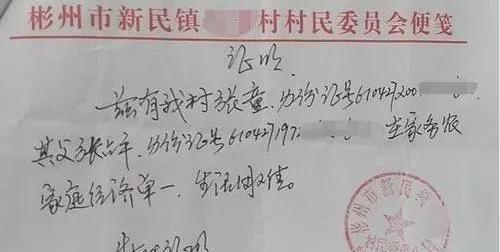 彬州市新民镇 村村民委员会便笺
证明
兹有我村张童,身份证号610427200
其父张占平,身份证号61042719 在家务农
家庭经济单一,生活困难。
特此证明
彬州市新民镇
村民委员会